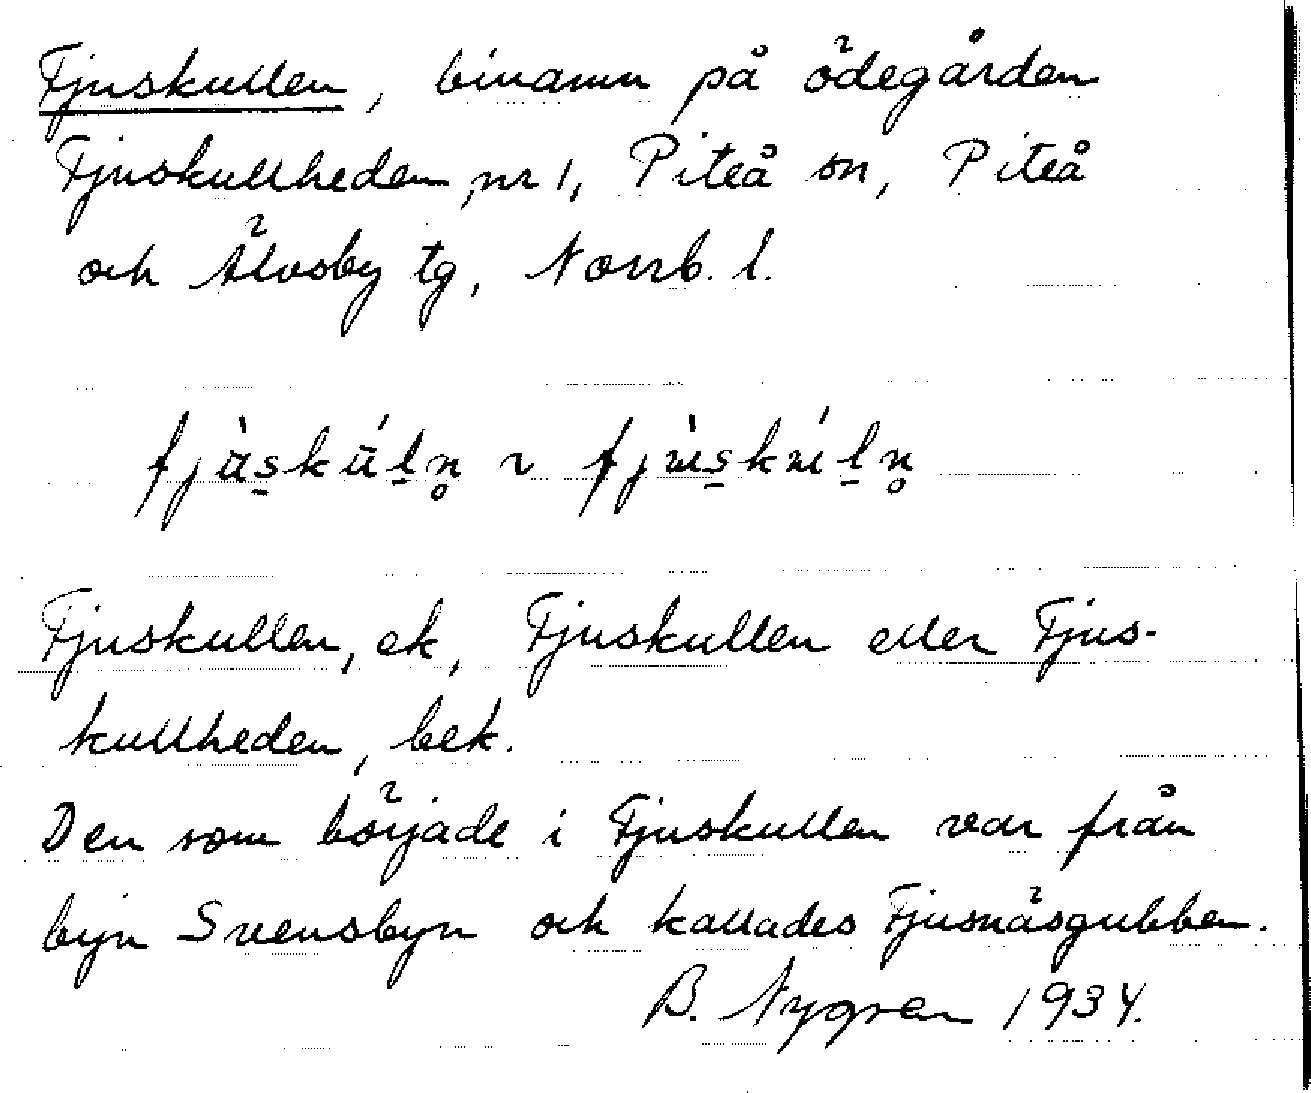 Fjuskullen, binamn på ödegården
Fjuskullheden, nr 1, Piteå sn, Piteå
och Älvsby tg, Norrb. l.
fjǜs̠kǘl̠n̥ ~ fjɯ̀s̠kɯ́l̠n̥
Fjuskullen, ek, Fjuskullen eller Fjus-
kullheden, bek.
Den som började i Fjuskullen var från
byn Svensbyn och kallades Fjusnäsgubben.
B. Nygren 1934.